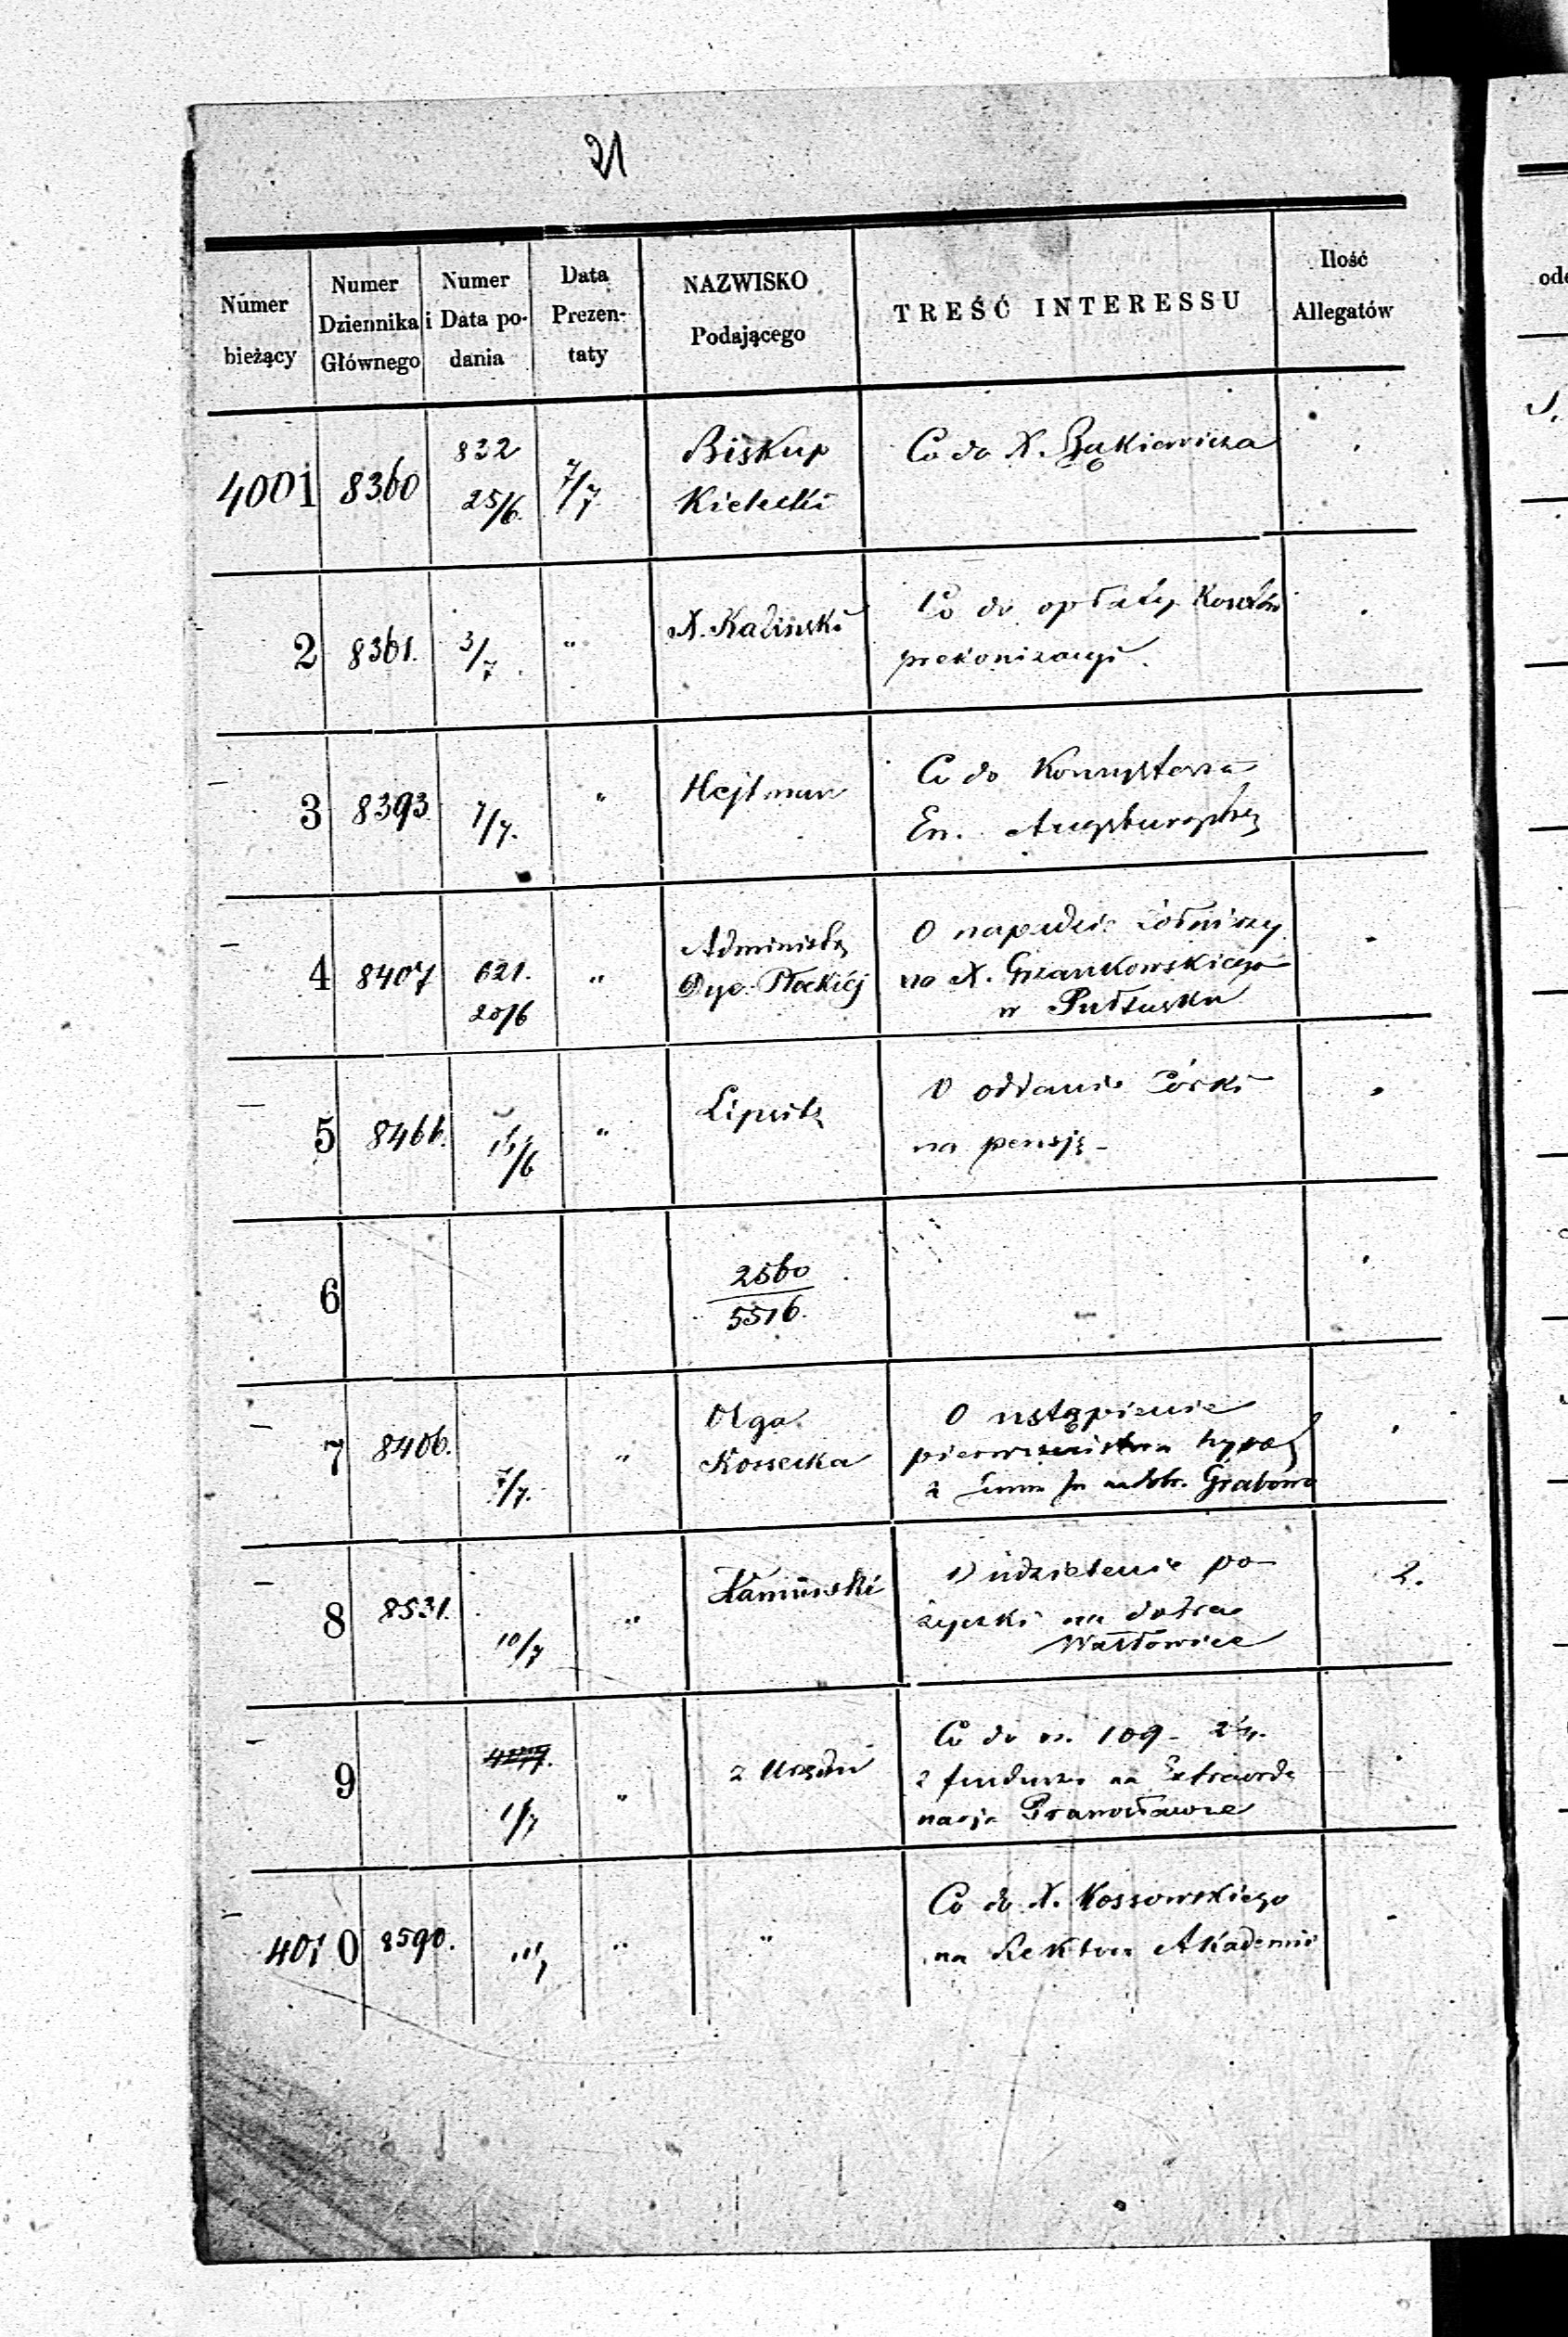 21
Numer bieżący
Numer Dziennika Głównego
Numer i Data podania
Data Prezentaty
NAZWISKO Podającego
TREŚĆ INTERESSU
Ilość Allegatów
4001 8360 832 25/6. 7/7 Biskup Kielecki
Co do X. Bąkiewicza
2 8361. 3/7 " X. Kaliński
Co do opłaty Kosztów
prekonizacyi.
3 8393 7/7. " Hejtman
Co do Konsystorza
Ew. Augsburgskeg
4 8407 621. 20/6 " Administr. Dyec. Płockiéj
O napadzie żołnierzy
na X. Grzankowskiego
w Pułtusku
5 8466. /6 "
O oddanie Córki
na pensją -
6 2560
5516.
7 8406. 7/7. " Olga Kossecka
O ustąpienie
pierwszeństwa hypot
z Summ na dobr. Grabowo
8 8531. 10/7 " Kamiński
O udzielenie po-
życzki na dobra 2.
Wattowice
9 1/7 " z Urzędu
Co do rs. 109 -
z funduszu na Extraordy
narja
4010 8590. " "
Co do X. Kossowskiego
na Rektora Akademii